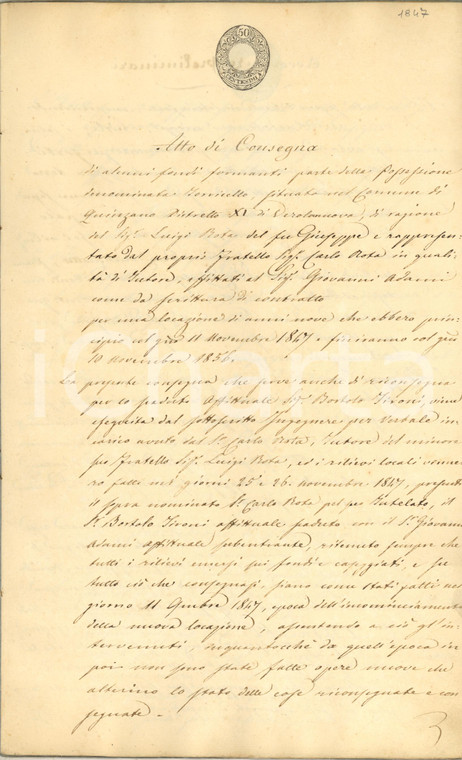 1847
50
CENTESIMI
Atto di Consegna
di alcuni fondi formanti parte della Possessione
denominata Torricello situata nel Comune di
Quinzano Distretto XI di Verolanuova, di ragione
del Sigr. Luigi Rota del fu Giuseppe e rappresen-
tato dal proprio Fratello Sigr. Carlo Rota in quali-
tà di Tutore, affittati al Sigr. Giovanni Adami
come da scrittura di contratto
per una locazione di anni nove che ebbero prin-
cipio col giorno 11 Novembre 1847 e finiranno col giorno
10 Novembre 1856.
La presente consegna che serve anche di riconsegna
per lo scaduto affittuale Sigr. Bortolo Tironi, viene
eseguita dal sottoscritto Ingegnere per Verbale in-
carico avuto dal Sr. Carlo Rota, Tutore del minore
suo Fratello Sigr. Luigi Rota, ed i rilievi locali venne-
ro fatti nei giorni 25 e 26 Novembre 1847, presenti
il sopra nominato Sr. Carlo Rota pel suo Tutelato, il
Sr. Bortolo Tironi affittuale scaduto con il Sr. Giovanni
Adami affittuale subentrante, ritenuto sempre che
tutti i rilievi emersi sui fondi e caseggiati, e su
tutto ciò che consegnasi, siano come stati fatti nel
giorno 11 9mbre 1847, epoca dell'incominciamento
della nuova locazione, assentendo a ciò gl'in-
tervenuti, sequantocchè da quell'epoca in
poi non sono state fatte opere nuove che
alterino lo stato delle cose riconsegnate e con-
segnate.
iCharta